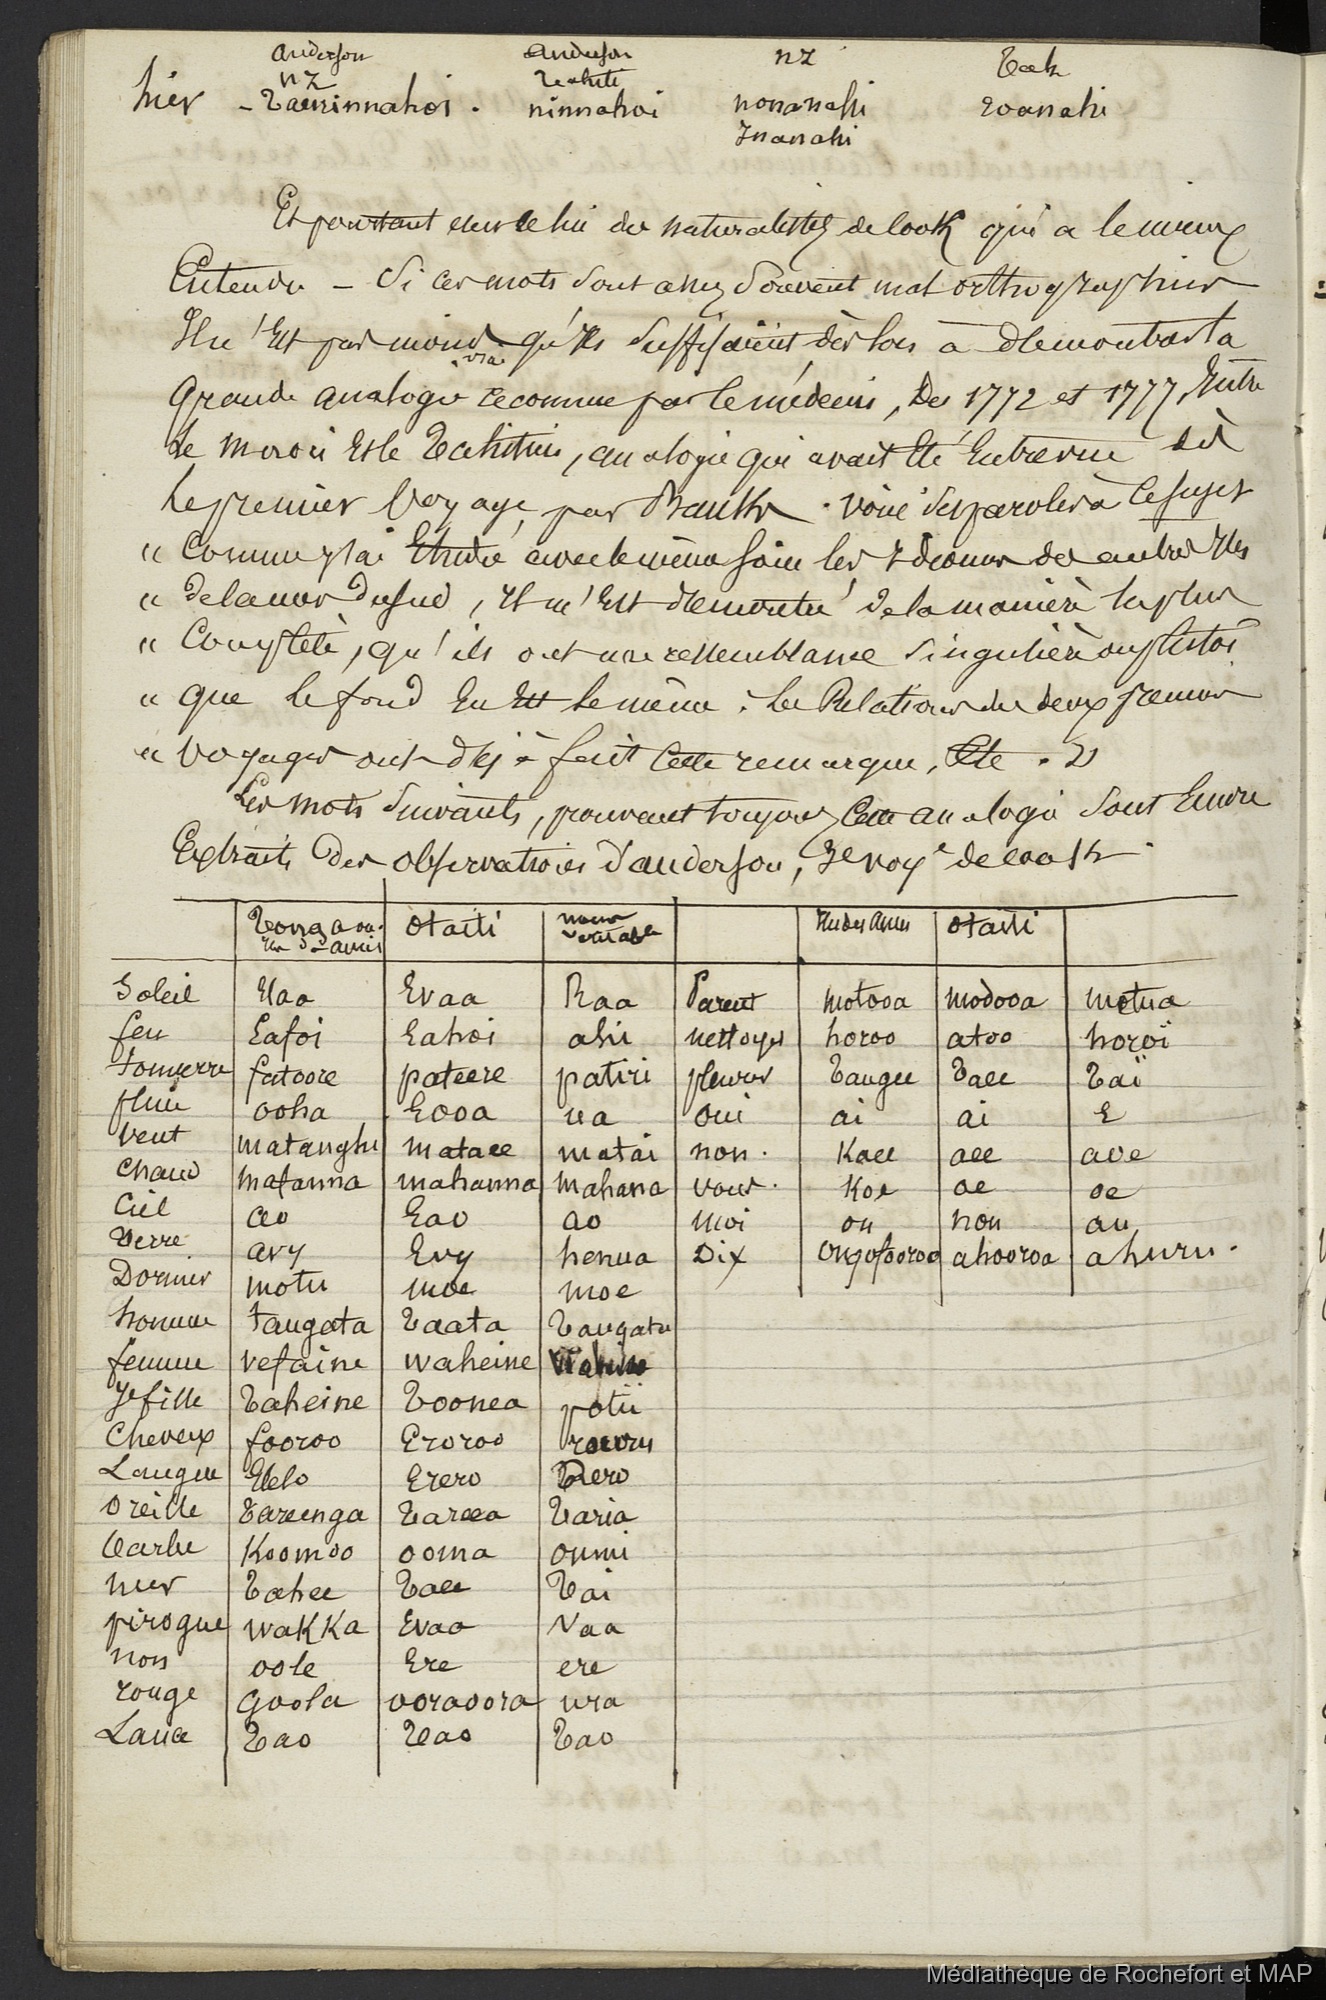 anderson anderson nz Tah
nz Tahiti
hier - Taeninnahoi . ninnahoi nonanahi noanahi
Inanahi
Et pourtant c'est celui des naturalistes de Cook qui a le mieux
Entendu - Si ces mots sont assez souvent mal orthographiés
Il n'Est pas moins vrai qu'ils suffisaient dès lors à démontrer la
Grande analogie reconnue par le médecin, De 1772 et 1777, Entre
Le maori Et le Tahitien, analogie qui avait Eté Entrevue dès
le premier Voyage, par Banks . Voici ses paroles à ce sujet
" Comme j'ai Etudié avec le même soin les Idiomes des autres Iles
" De la mer du sud, Il m'Est démontré de la manière la plus
" Complète, qu'ils ont une ressemblance singulière ou plutôt
" que le fond En Est le même . Les Relations des deux premiers
" Voyages ont déjà fait Cette remarque, Etc . "
Les mots suivants, prouvant toujours Cette analogie sont Encore
Extraits Des observations d'anderson, 3e voye de Cook .
Tonga ou Otaiti noms Iles des Amis Otaiti
Ile des amis veritable
Soleil Elaa Evaa Raa Parent motooa modooa metua
feu Eafoi Eahoi ahi nettoyer horoo atoo horoï
Tonnerre fatoore pateere patiri pleurer Tangee Taee Taï
pluie ooha Eooa ua oui ai ai E
Vent matanghe mataee matai non . Kaee aee aoe
Chaud mafanna mahanna mahana vous . Koe oe oe
Ciel ao Eao ao moi ou nou au
Terre avy Evy henua Dix ongofooroo ahooroa ahuru .
Dormir motu moe moe
homme tangata Taata Tangata
femme vefaine waheine Wahine
Je fille Taheine Toonea potii
Cheveux fooroo Eroroo rouru
Langue Elelo Erero Rero
Oreille Tareenga Tareea Taria
barbe Koomoo ooma oumi
mer Tahee Taee Tai
pirogue wakka Evaa Vaa
non oole Ere ere
rouge goola ooraoora ura
Lance Tao Tao Tao
Médiathèque de Rochefort et MAP